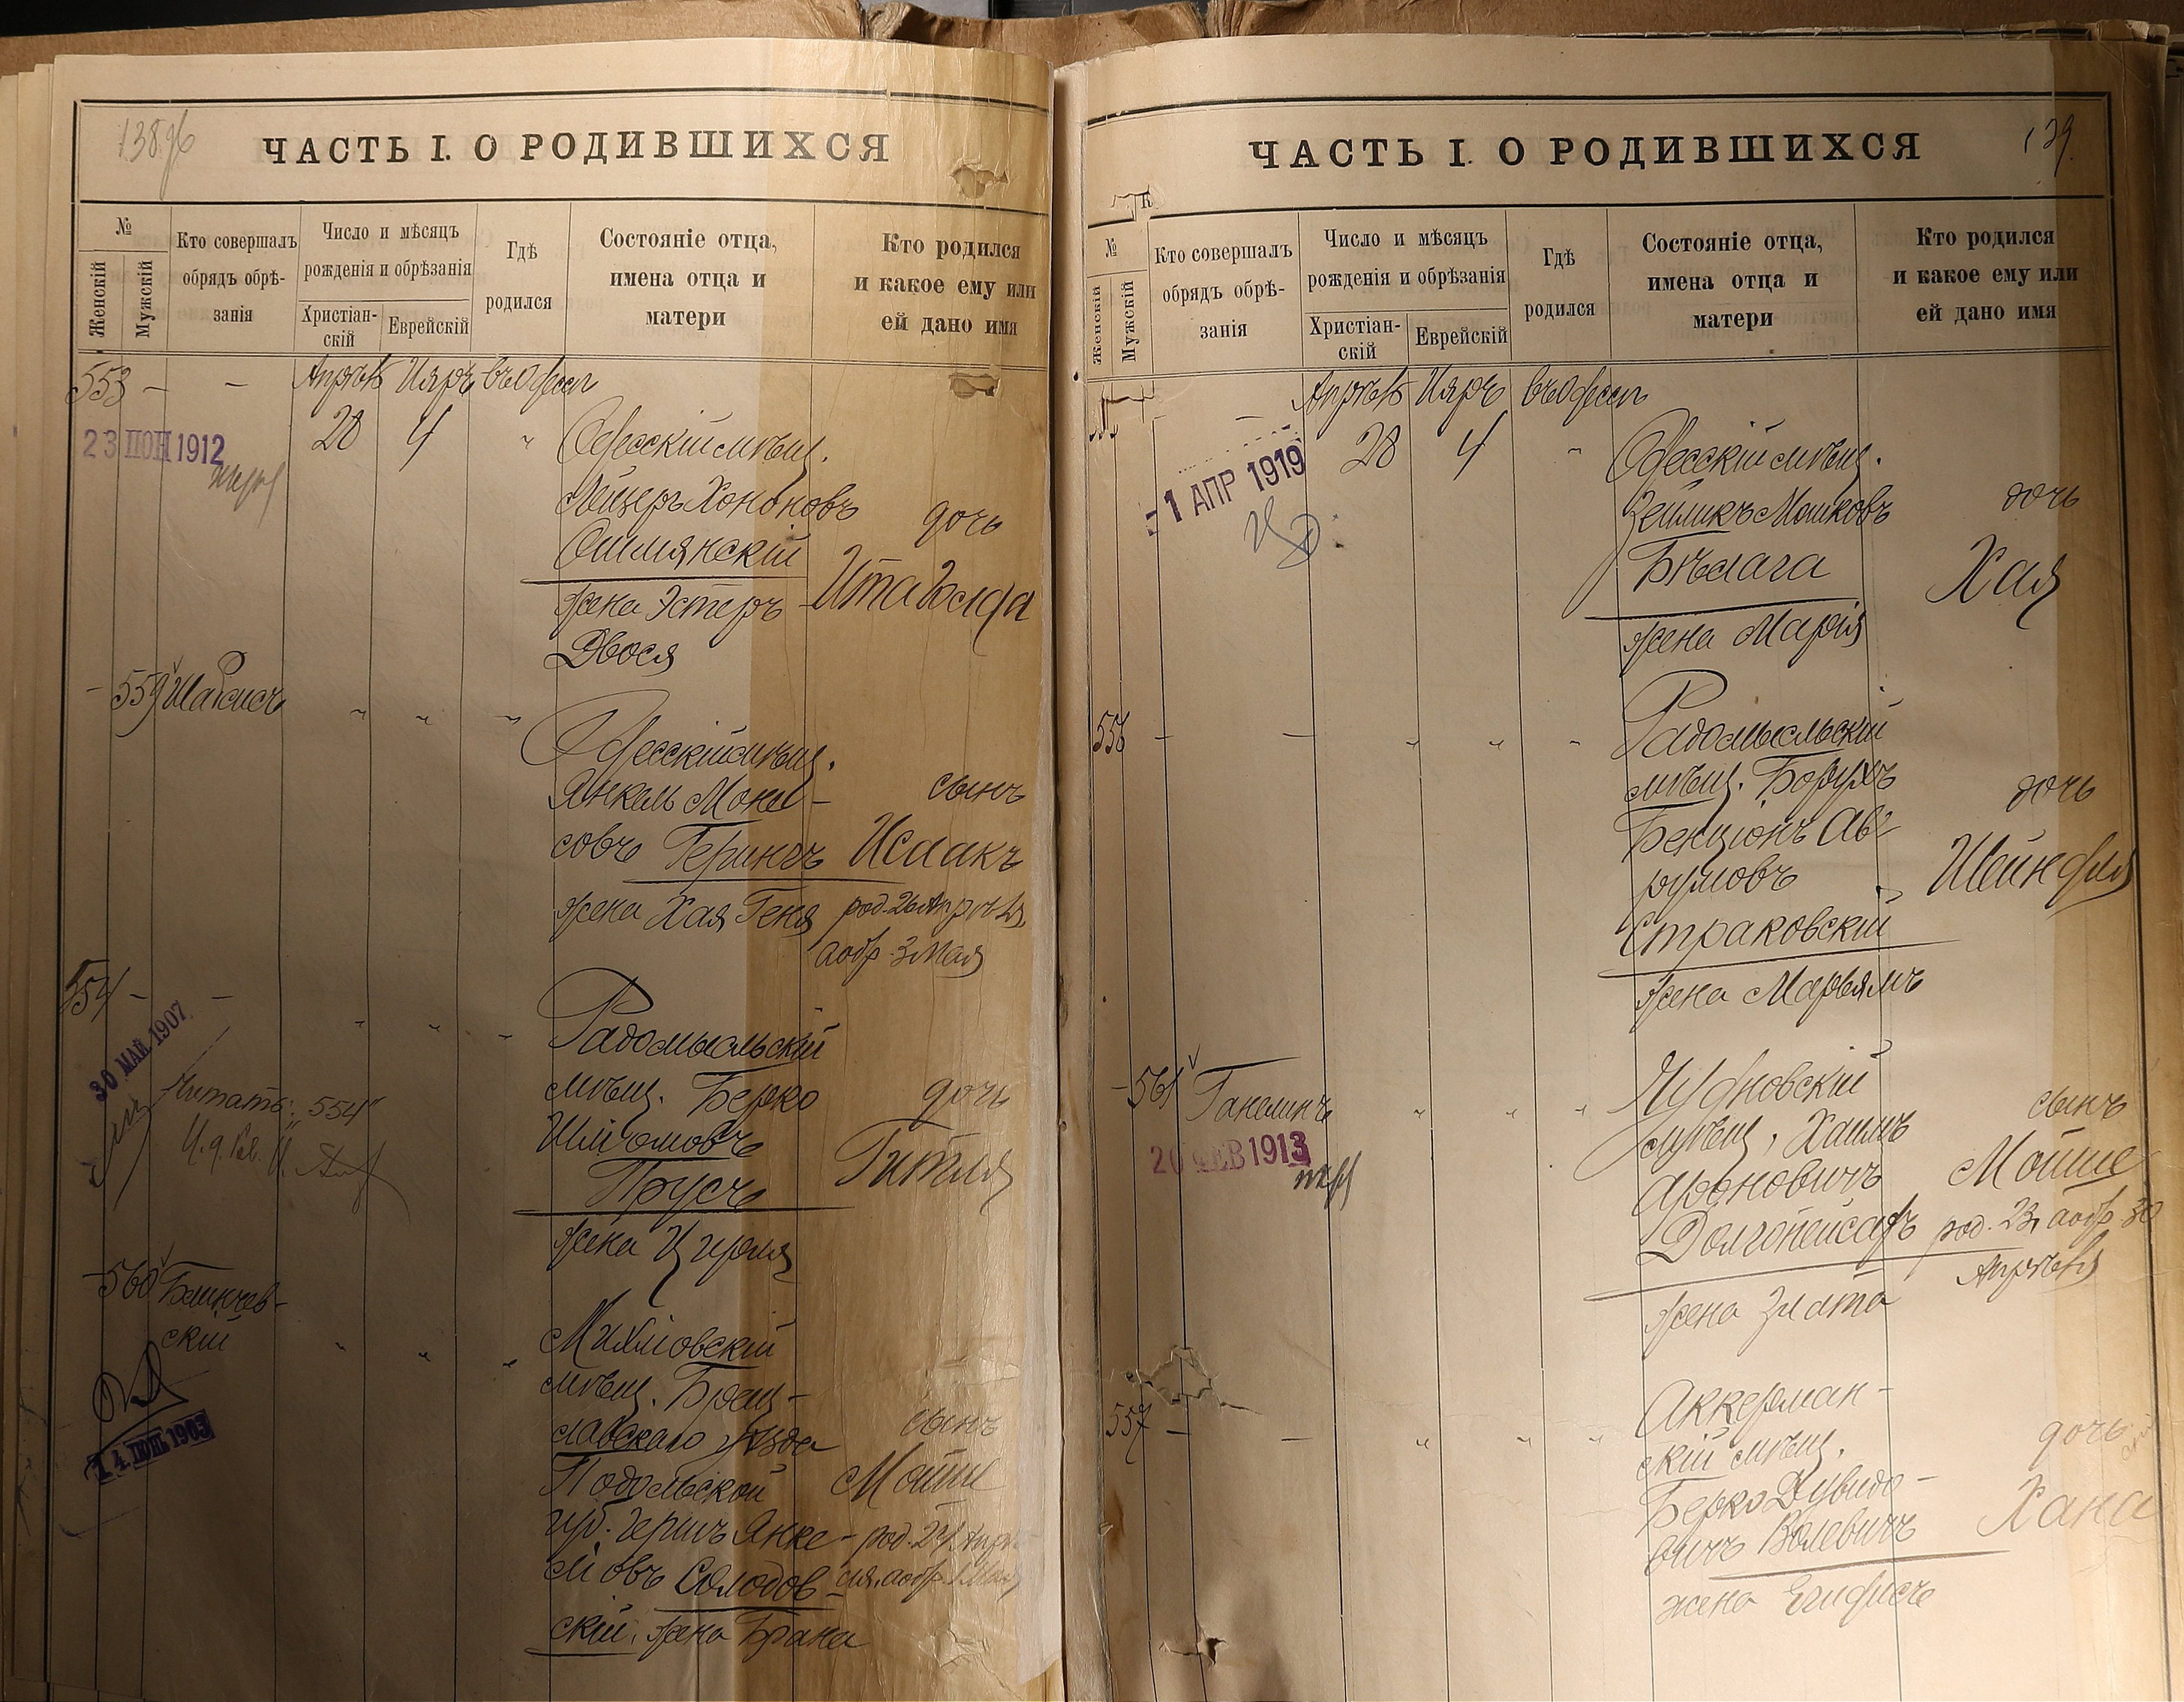 138 об
ЧАСТЬ I. О РОДИВШИХСЯ
№
Женскій
Мужскій
Кто совершалъ
обрядъ обрѣ-
занія
Число и мѣсяцъ
рожденія и обрѣзанія
Христіан-
скій
Еврейскій
Гдѣ
родился
Состояніе отца,
имена отца и
матери
Кто родился
и какое ему или
ей дано имя
553 — — Апрѣль Ияръ въ Одессѣ
23 ІЮН 1912
28 4 "
Одесскій мѣщ.
Лейзеръ Хононовъ
Ошмянскій
жена Эстеръ
Двося
дочь
Ита
— 559 Шабсисъ " " "
Одесскій мѣщ.
Янкель Моне-
совъ Герингъ
жена Хая Геня
сынъ
Исаакъ
род. 26 Апрѣля,
а обр. 3 Мая
554 — — " " "
30 МАЙ 1907
Читать: "554"
Радомысльскій
мѣщ. Берко
Шліомовъ
Прусъ
жена Цирля
дочь
Гитля
— 560 Башкев-
скій " " "
14 ІЮН 1903
мѣщ. Брац-
лавскаго уѣзда
Подольской
губ. Гершъ Янке-
лiовъ Солодов-
скій, жена Брана
сынъ
Мойше
род. 24 Апрѣ-
ля, а обр. 1 Мая
139.
ЧАСТЬ I. О РОДИВШИХСЯ
№
Женскій
Мужскій
Кто совершалъ
обрядъ обрѣ-
занія
Число и мѣсяцъ
рожденія и обрѣзанія
Христіан-
скій
Еврейскій
Гдѣ
родился
Состояніе отца,
имена отца и
матери
Кто родился
и какое ему или
ей дано имя
— Апрѣль Ияръ въ Одессѣ
1 АПР 1919
28 4 "
Одесскій мѣщ.
Зейликъ Мошковъ
Бѣлага
жена Марія
дочь
Хая
556 — — " " "
Радомысльскій
мѣщ. Борухъ
Бенціонъ Ав-
румовъ
Страковскій
жена Марьямъ
дочь
Шейндля
— 561 Ганелинъ " " "
20 ФЕВ 1913
Чудновскій
мѣщ. Хаимъ
Ароновичъ
жена Злата
сынъ
Мойше
род. 23, а обр. 30
Апрѣля
557 — — " " "
Аккерман-
скій мѣщ.
Берко Дувидо-
вичъ Волевичъ
жена
дочь
Хана